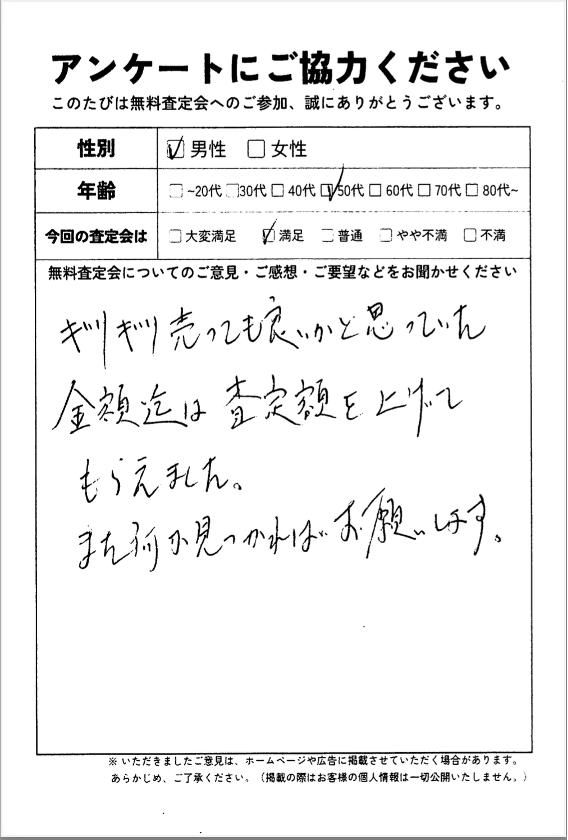 アンケートにご協力ください
このたびは無料査定会へのご参加、誠にありがとうございます。
性別 男性 女性
年齢 ~20代 30代 40代 50代 60代 70代 80代~
今回の査定会は 大変満足 満足 普通 やや不満 不満
無料査定会についてのご意見・ご感想・ご要望などをお聞かせください
ギリギリ売っても良いかと思っていた
金額迄は査定額を上げて
もらえました。
また何か見つかればお願いします。
※ いただきましたご意見は、ホームページや広告に掲載させていただく場合があります。
あらかじめ、ご了承ください。（掲載の際はお客様の個人情報は一切公開いたしません。）